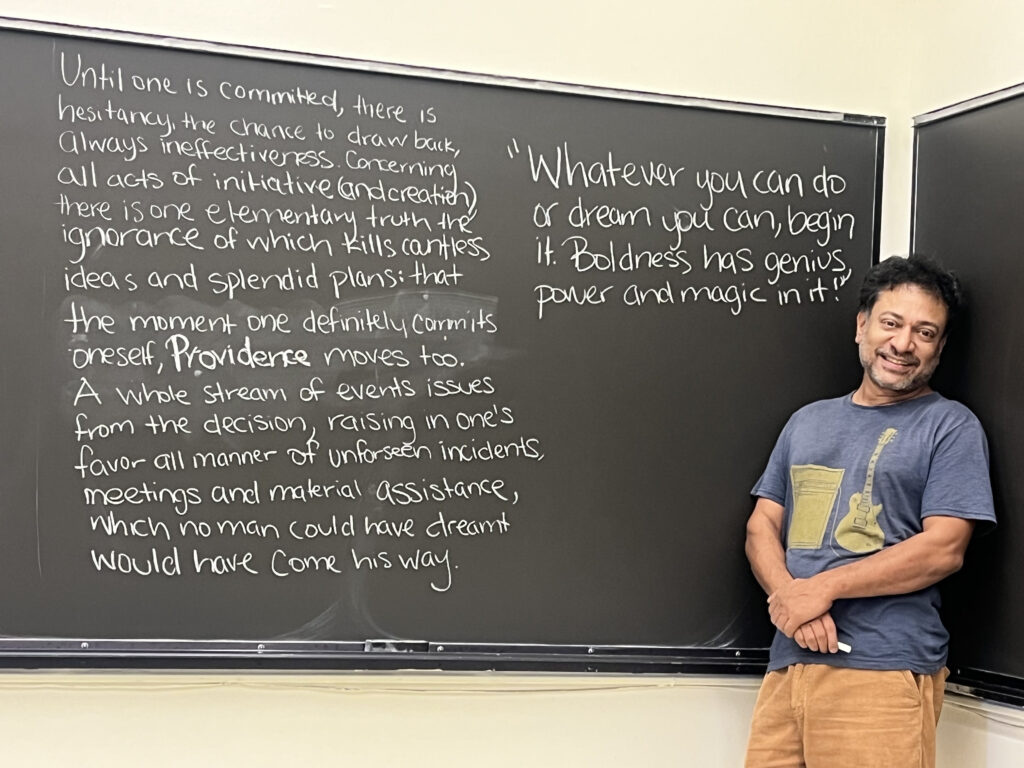 Until one is committed, there is
hesitancy, the chance to draw back,
always ineffectiveness. Concerning
all acts of initiative (and creation)
there is one elementary truth the
ignorance of which kills countless
ideas and splendid plans: that
the moment one definitely commits
oneself, Providence moves too.
A whole stream of events issues
from the decision, raising in one's
favor all manner of unforseen incidents,
meetings and material assistance,
which no man could have dreamt
would have come his way.
"Whatever you can do
or dream you can, begin
it. Boldness has genius,
power and magic in it!"